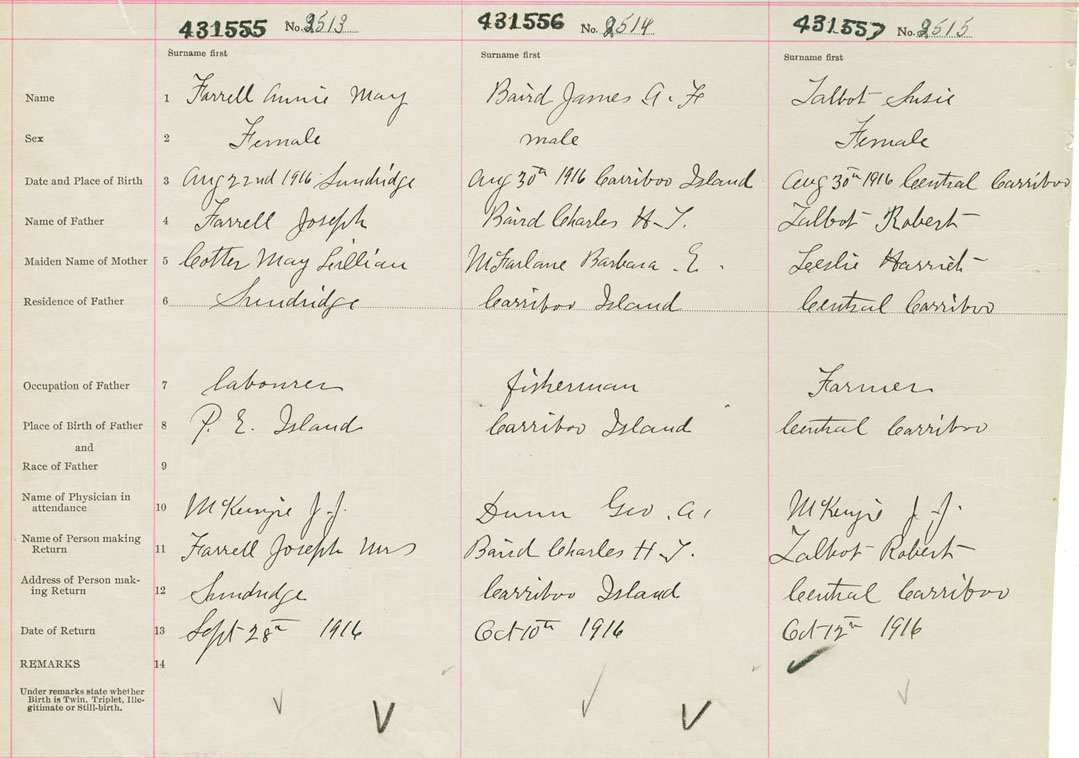 431555 No. 2513 431556 No. 2514 431557 No. 2515
Surname first Surname first Surname first
Name 1 Farrell Annie May Baird James A. F Talbot Susie
Sex 2 Female male Female
Date and Place of Birth 3 Aug 22nd 1916 Sundridge Aug 30th 1916 Carriboo Island Aug 30th 1916 Central Carriboo
Name of Father 4 Farrell Joseph Baird Charles H. T. Talbot Robert
Maiden Name of Mother 5 Cotter May Lillian McFarlane Barbara. E. Leslie Harriet
Residence of Father 6 Sundridge Carriboo Island Central Carriboo
Occupation of Father 7 labourer fisherman Farmer
Place of Birth of Father 8 P. E. Island Carriboo Island Central Carriboo
and
Race of Father 9
Name of Physician in
attendance 10 McKenzie J. J. Dunn Geo. A. McKenzie J. J.
Name of Person making
Return 11 Farrell Joseph Mrs Baird Charles H. T. Talbot Robert
Address of Person mak-
ing Return 12 Sundridge Carriboo Island Central Carriboo
Date of Return 13 Sept 28th 1916 Oct 10th 1916 Oct 12th 1916
REMARKS 14
Under remarks state whether
Birth is Twin, Triplet, Ille-
gitimate or Still-birth.